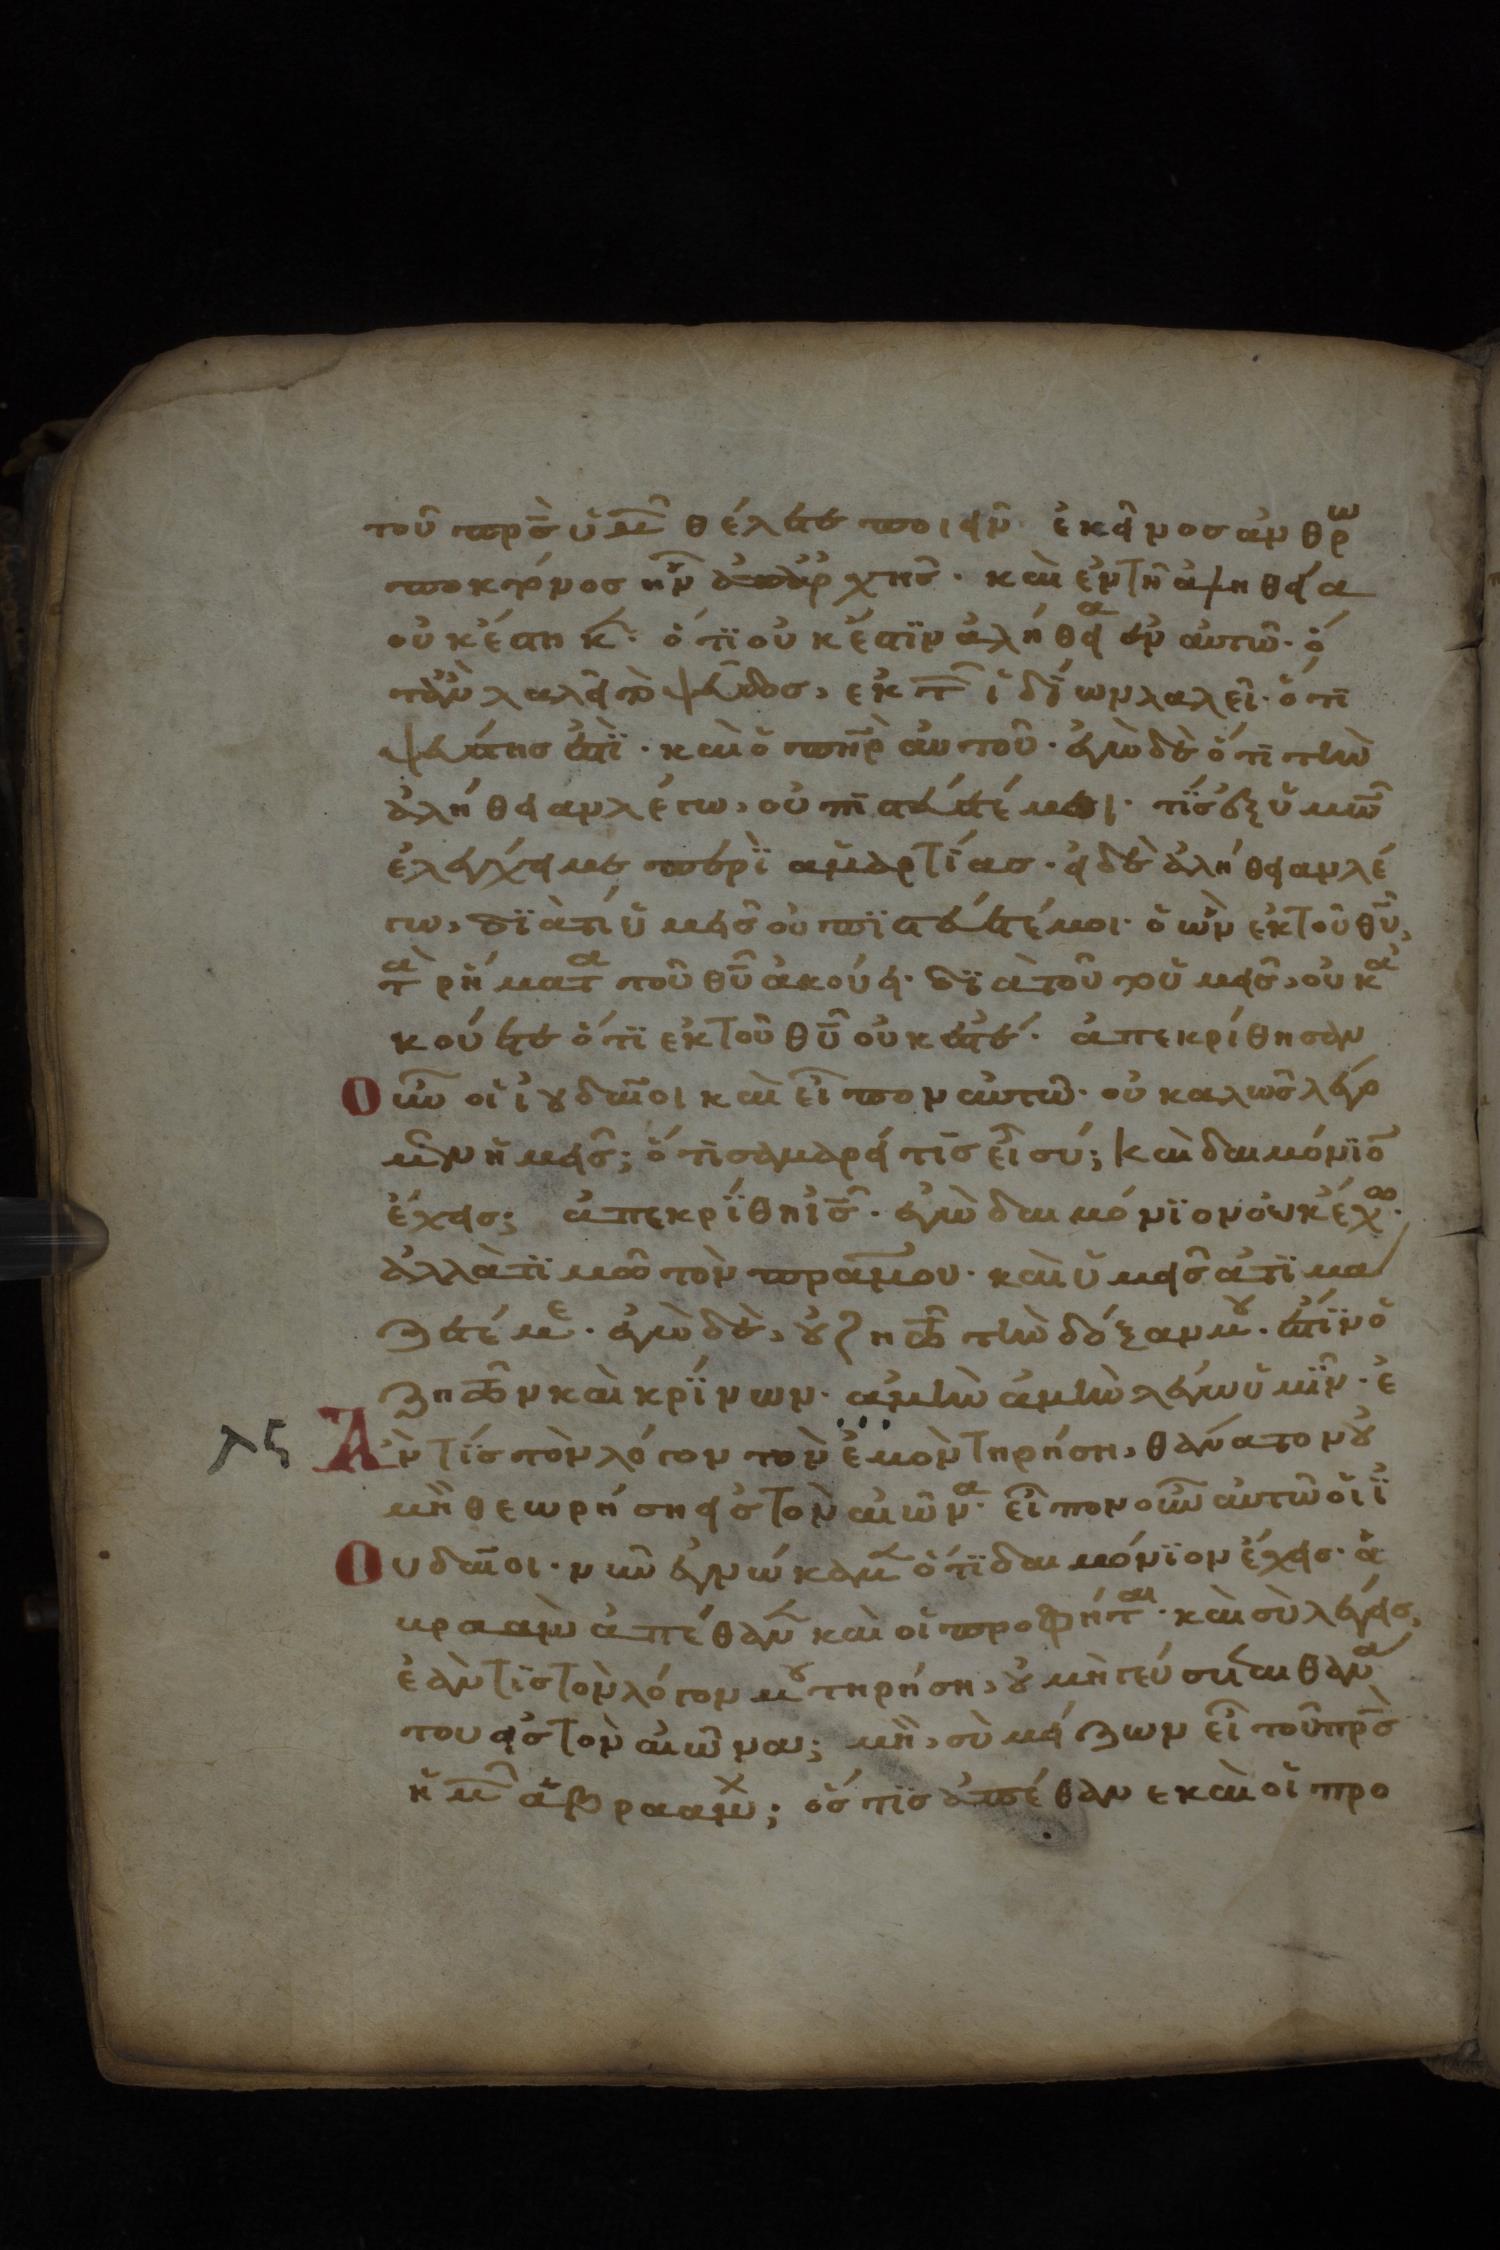 τοῦ πρς ὑμ θέλετε ποιεῖν ἐκεῖνος ἀνθρω
ποκτόνος ἦν ἀπαρχῆς· καὶ ἐν τῆ ἀληθεία
οὐκ έστηκ· ὅτϊ οὐκ έστϊν ἀλήθεια ἐν αὐτῶ· ὁ
τὰν λαλεῖ τὸ ψεῦδος, ἐκ τ ἰδίων λαλεῖ· ὅτι
ψεύστης ἐστὶ· καὶ ὁ πηρ αὐτοῦ· ἐγὼ δὲ ὅτι τὴν
ἀλήθειαν λέγω, οὐ πιστεύετέ μοι· τίς ἐξ ὑμῶ
ἐλέγχει με περὶ ἁμαρτίας· εἰ δὲ ἀλήθειαν λέ
γω, διὰ τί ὑμεῖς οὐ πϊστεύετέ μοι· ὁ ὢν ἐκ τοῦ θυ,
τὰ ρήματα τοῦ θυ ἀκούει· δϊὰ τοῦτο ὑμεῖς, οὐκ ἀ
κούετε ὅτϊ ἐκ τοῦ θυ οὐκ ἐστέ· ἀπεκρίθησαν
οὖν οἱ ἰουδαῖοι καὶ εἶπον αὐτῶ· οὐ καλῶς λέγο
μεν ἡμεῖς; ὅτι σαμαρείτις εἶ σύ; καὶ δαιμόνϊο
έχεις; ἀπεκρίθη ις· ἐγὼ δαιμόνϊον οὐκ έχω·
ἀλλὰ τϊμῶ τὸν πρα μου· καὶ ὑμεῖς ἀτϊμά
ζετέ με· ἐγὼ δὲ, οὐ ζητῶ τὴν δόξαν μου· ἐστϊν ὁ
ζητῶν καὶ κρίνων· ἀμὴν ἀμὴν λέγω ὑμῖν· ἐ
άν τϊς τὸν λόγον τὸν ἐμὸν τηρήση, θάνατον οὐ
μὴ θεωρήση εἰς τὸν αἰῶνα· εἶπον οὖν αὐτῶ οἱ ἰ
ουδαῖοι· νῦν ἐγνώκαμεν ὅτϊ δαιμόνϊον έχεις· ἀ
βραὰμ ἀπέθαν καὶ οἱ προφήται· καὶ σὺ λέγεις,
ἐάν τϊς τὸν λόγον μου τηρήση, οὐ μὴ γεύσεται θανά
του εἰς τὸν αἰῶνα; μὴ, σὺ μείζων εἶ τοῦ πρς
ἡμ ἀβραὰμ; ὅς τις ἀπέθανε καὶ οἱ προ